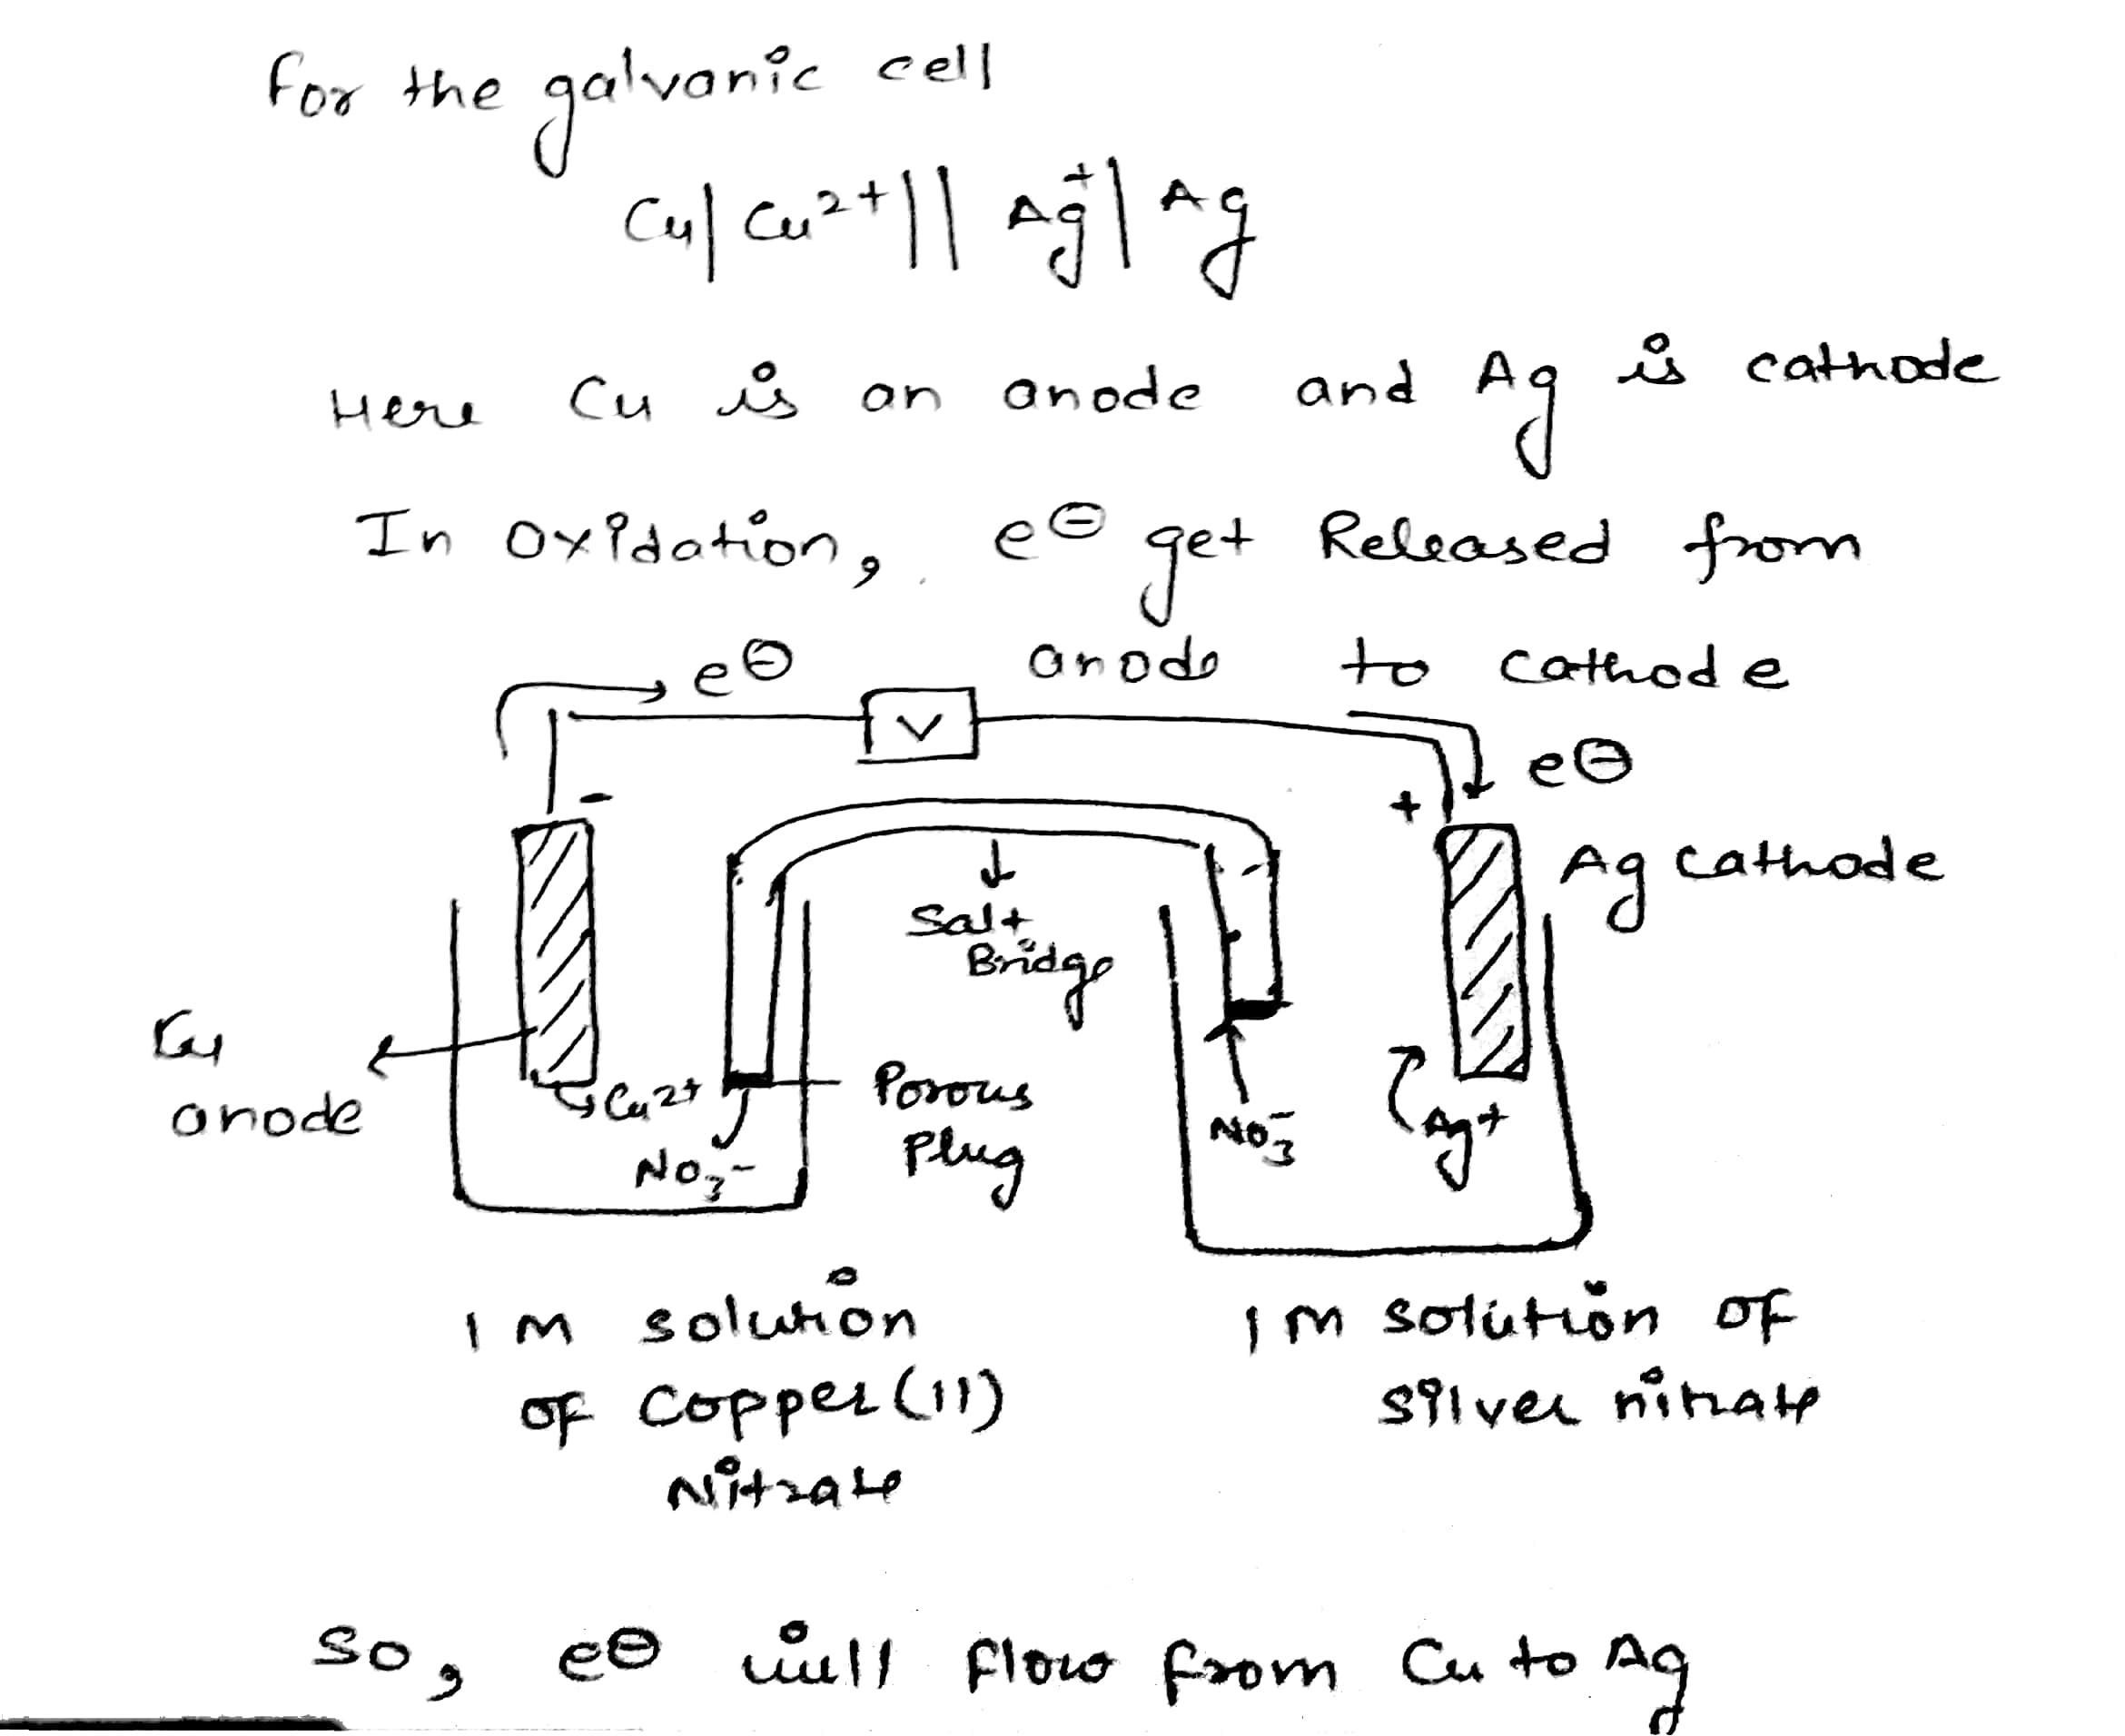 For the galvanic cell
Cu| Cu²⁺|| Ag⁺| Ag
Here Cu is an anode and Ag is cathode
In Oxidation, e⊖ get Released from
anode to cathode
e⊖
V
e⊖
-
+
Ag cathode
Salt
Bridge
Cu
anode
Cu2+
Porous
Plug
NO₃-
NO₃-
Ag+
1 M solution
of Copper(II)
Nitrate
1 M solution of
silver nitrate
So, e⊖ will flow from Cu to Ag